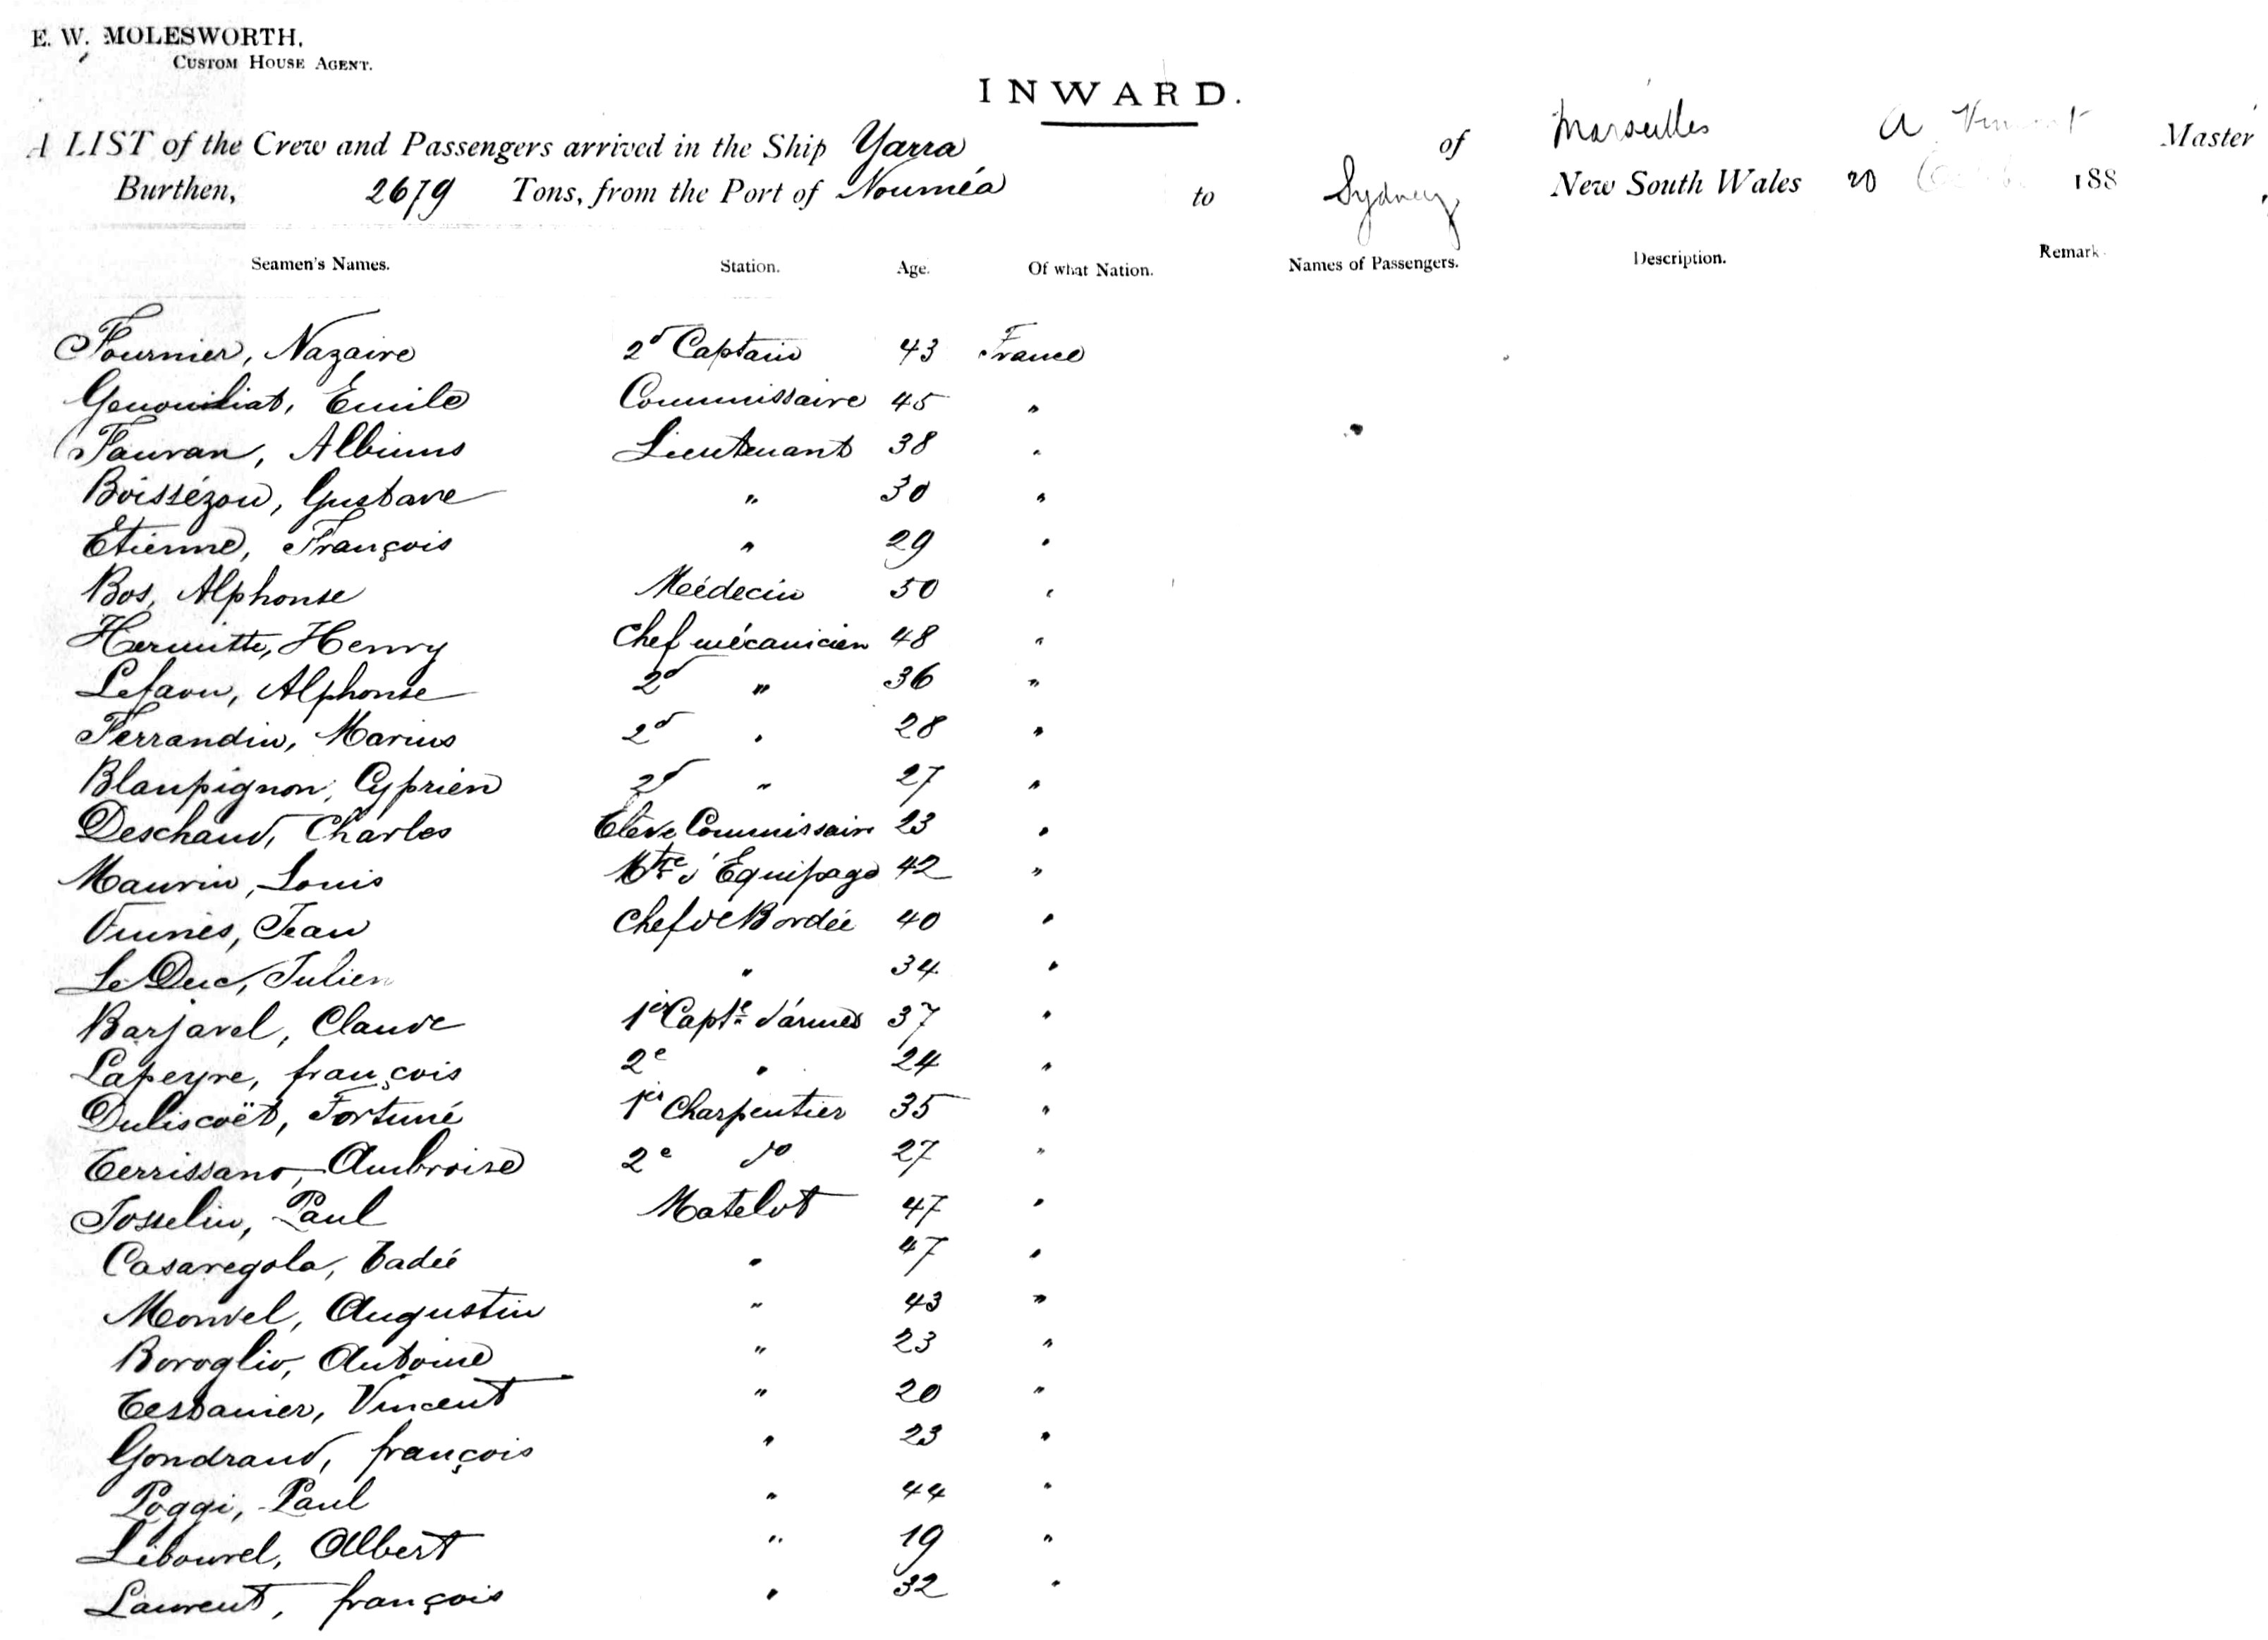 E. W. MOLESWORTH,
CUSTOM HOUSE AGENT.
INWARD.
A LIST of the Crew and Passengers arrived in the Ship Yarra of Marseilles A Master
Burthen, 2679 Tons, from the Port of Nouméa to Sydney New South Wales 20 188
Seamen's Names. Station. Age. Of what Nation. Names of Passengers. Description. Remark
Fournier, Nazaire 2d Captain 43 France
Emile Commissaire 45 "
Fauvan, Albinus Lieutenant 38 "
Boissézou, Gustave " 30 "
Etienne, François " 29 "
Bos, Alphonse Médecin 50 "
Hermitte, Henry Chef mécanicien 48 "
Lefaou, Alphonse 2d " 36 "
Ferrandin, Marius 2d " 28 "
Blanpignon, Cyprien 2d " 27 "
Deschaud, Charles Elève Commissaire 23 "
Maurin, Louis Mtre d'Equipage 42 "
Jean Chef de Bordée 40 "
Le Duc, Julien " 34 "
Barjavel, Claude 1er Capne d'armes 37 "
Lapeyre, françois 2e " 24 "
Duliscoët, Fortuné 1er Charpentier 35 "
Terrissano, Ambroise 2e do 27 "
Josselin, Paul Matelot 47 "
Casaregola, Tadée " 47 "
Monvel, Augustin " 43 "
Boroglio, Antoine " 23 "
Tessanier, Vincent " 20 "
Gondrand, françois " 23 "
Poggi, Paul " 44 "
Libourel, Albert " 19 "
Laurent, françois " 32 "